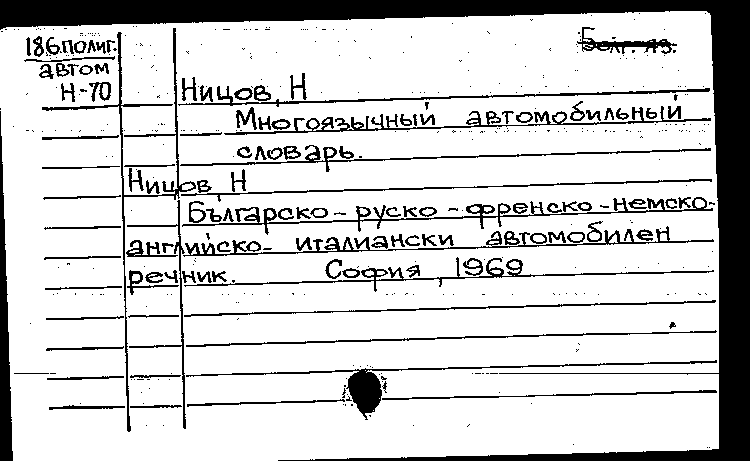 186.полиг.
Болг. яз.
автом
Н-70
Ницов, Н
Многоязычный автомобильный
словарь.
Ницов, Н
Българско-руско-френско-немско-
английско-италиански автомобилен
речник. София, 1969